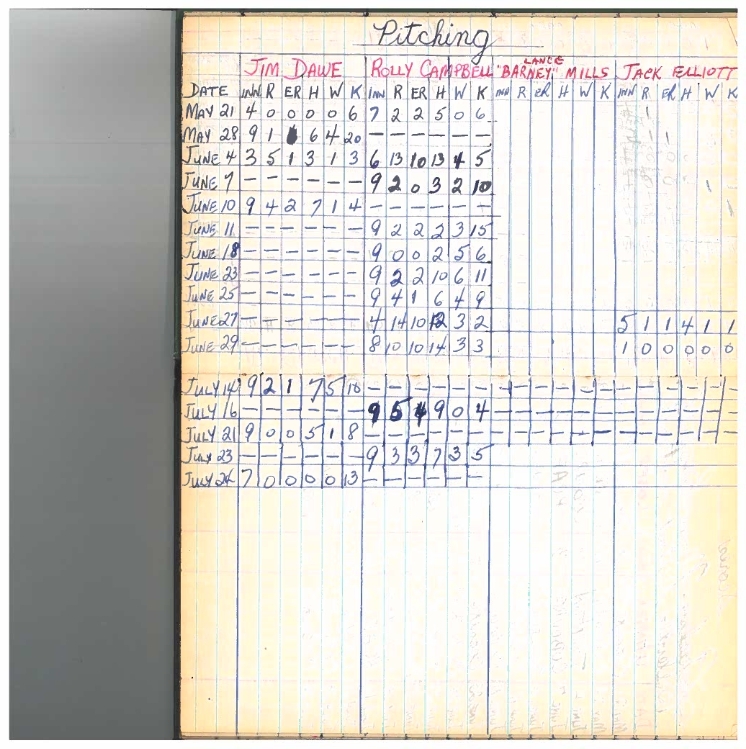 Pitching
JIM DAWE ROLLY CAMPBELL LANCE "BARNEY" MILLS JACK ELLIOTT
DATE INN R ER H W K INN R ER H W K INN R ER H W K INN R ER H W K
MAY 21 4 0 0 0 0 6 7 2 2 5 0 6
MAY 28 9 1 6 4 20 — — — — — —
JUNE 4 3 5 1 3 1 3 6 13 10 13 4 5
JUNE 7 — — — — — — 9 2 0 3 2 10
JUNE 10 9 4 2 7 1 4
JUNE 11 — — — — — — 9 2 2 2 3 15
JUNE 18 — — — — — — 9 0 0 2 5 6
JUNE 23 — — — — — — 9 2 2 10 6 11
JUNE 25 — — — — — — 9 4 1 6 4 9
JUNE 27 — — — — — — 4 14 10 12 3 2 5 1 1 4 1 1
JUNE 29 — — — — — — 8 10 10 14 3 3 1 0 0 0 0 0
JULY 14 9 2 1 7 5 — — — — — — — — — — — — — — — — — —
JULY 16 — — — — — — 9 5 4 9 0 4 — — — — — — — — — — — —
JULY 21 9 0 0 5 1 8 — — — — — — — — — — — — — — — — — —
JULY 23 — — — — — — 9 3 3 7 3 5
JULY 7 0 0 0 0 13 — — — — — —